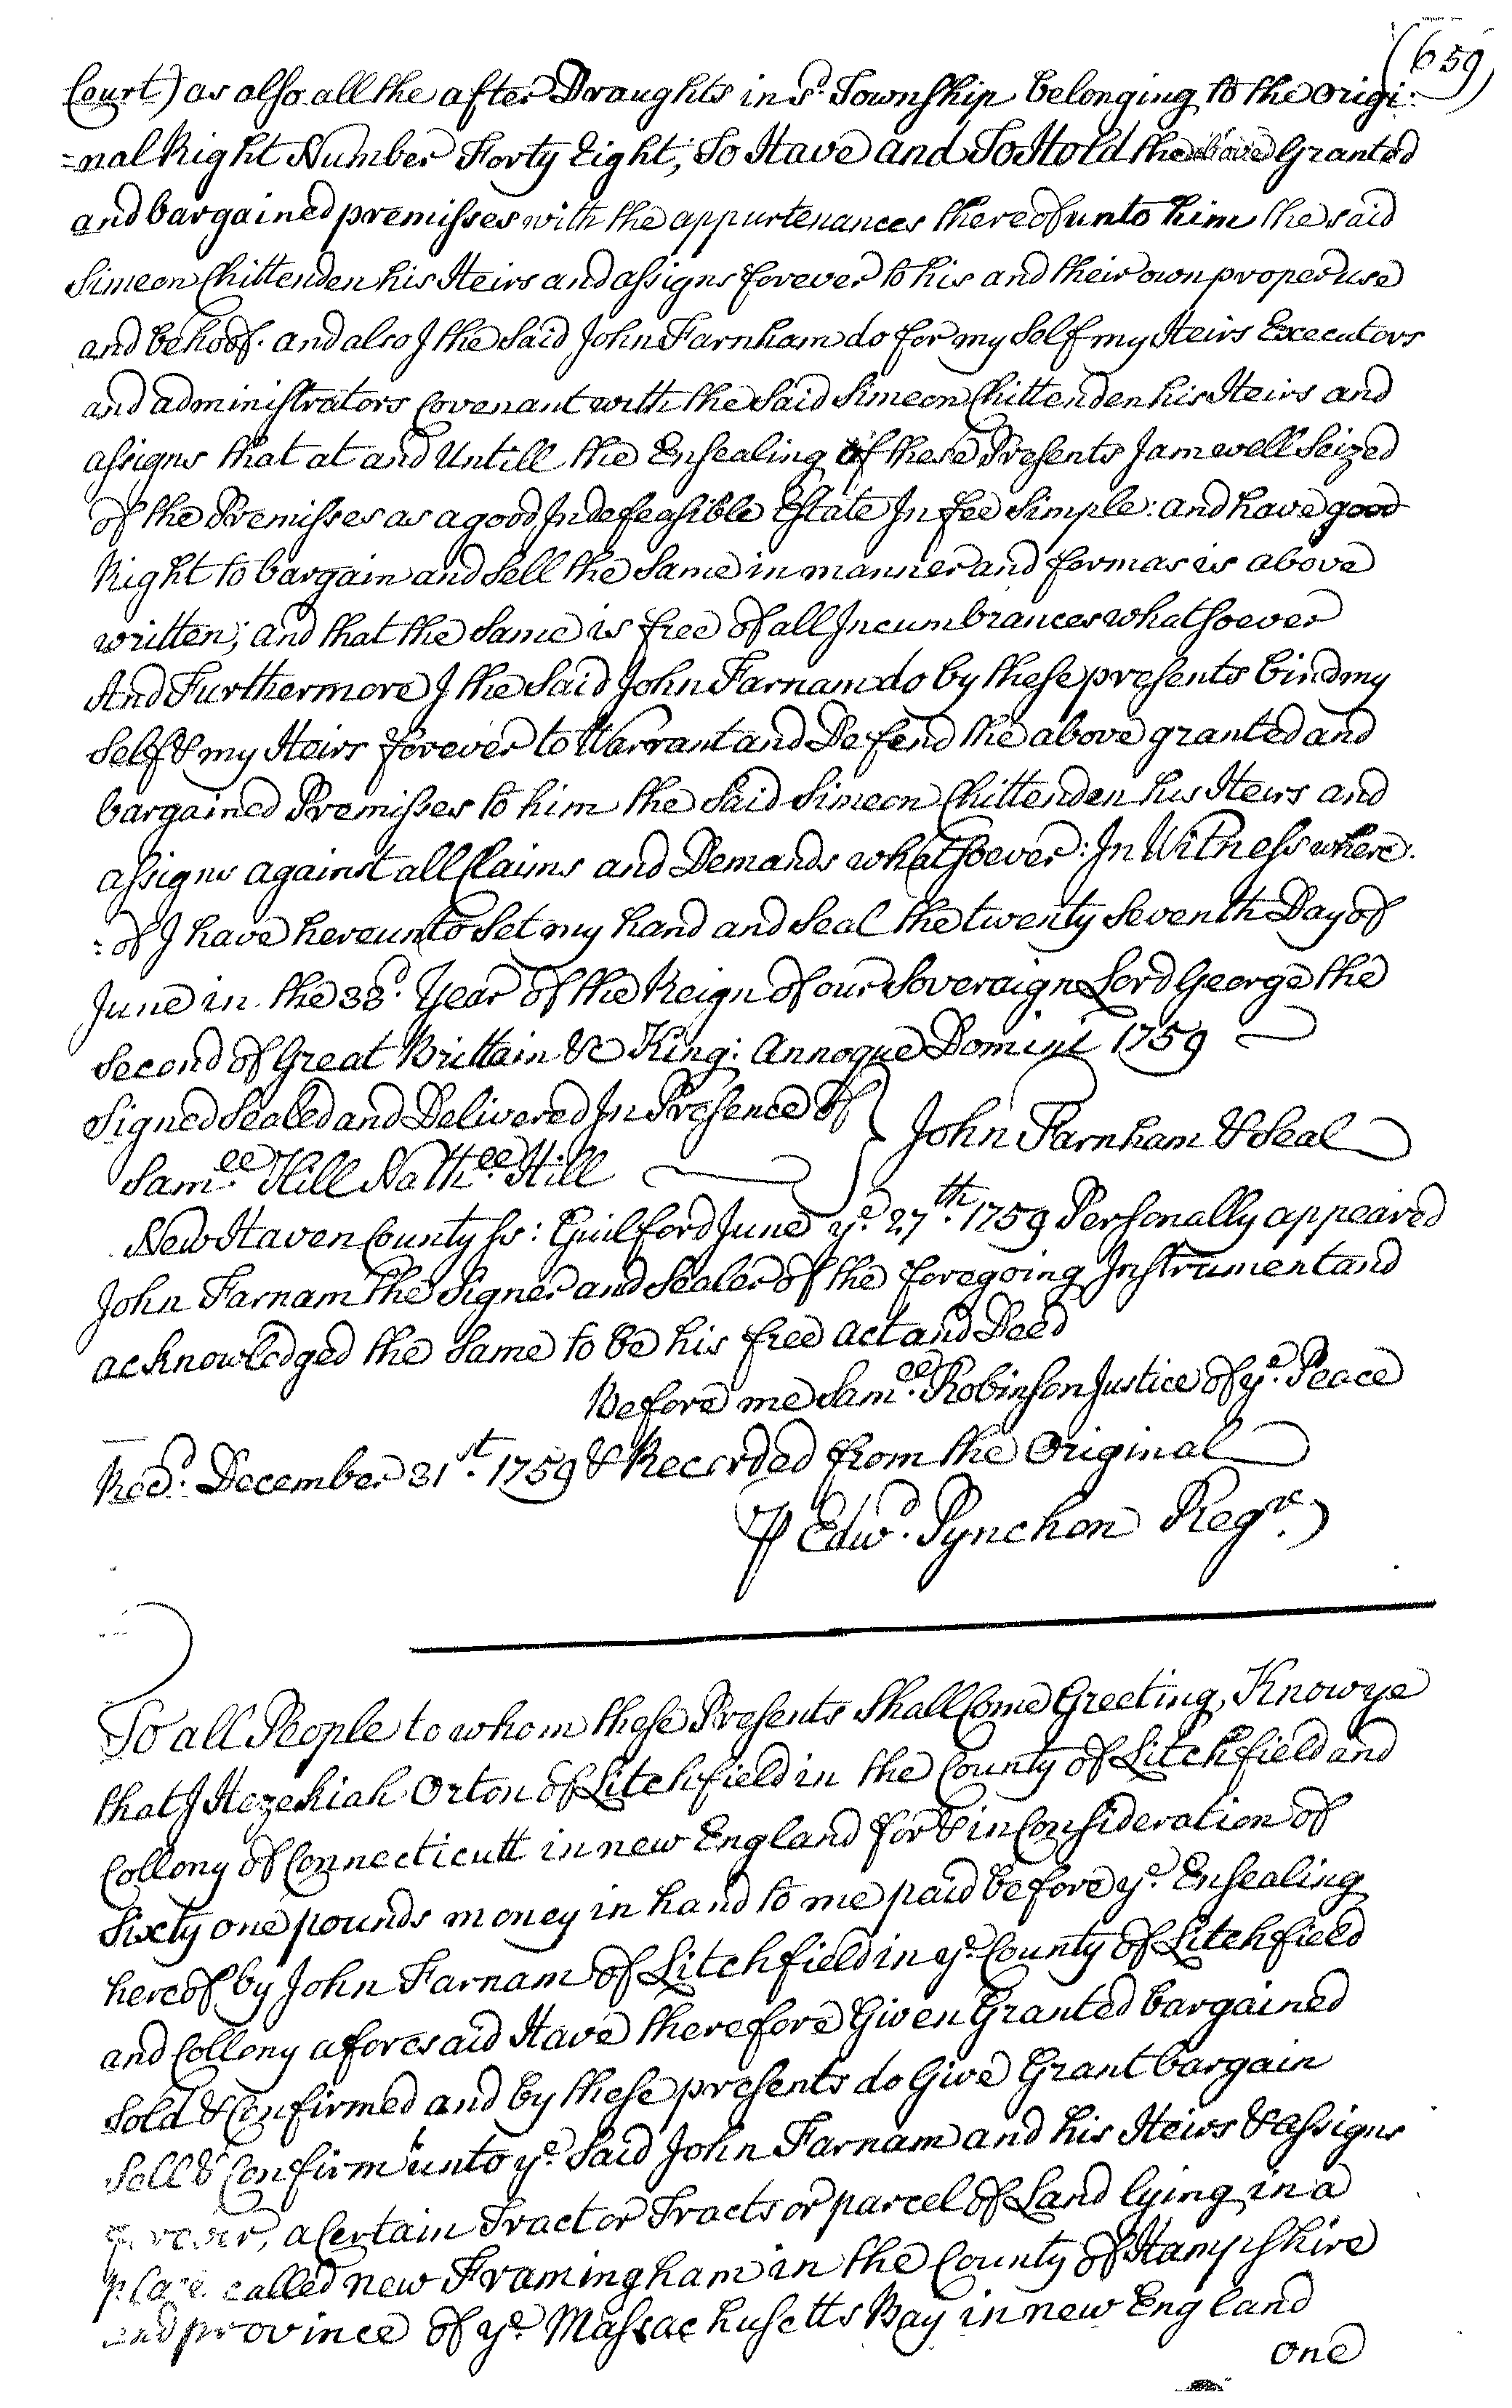 (659)
Court) as also all the after Draughts in sd. Township belonging to the origi:
=nal Right Number Forty Eight; To Have and To Hold the above Granted
and bargained premisses with the appurtenances thereof unto him the said
Simeon Chittenden his Heirs and assigns forever to his and their own proper use
and behoof. and also I the Said John Farnham do for my Self my Heirs Executors
and administrators Covenant with the Said Simeon Chittenden his Heirs and
assigns that at and Untill the Ensealing of these Presents I am well Seized
of the Premisses as a good Indefeasible Estate In fee Simple: and have good
Right to bargain and Sell the Same in manner and form as is above
written; and that the Same is free of all Incumbrances whatsoever
And Furthermore I the Said John Farnam do by these presents bind my
Self & my Heirs forever to Warrant and Defend the above granted and
bargained Premisses to him the Said Simeon Chittenden his Heirs and
assigns against all Claims and Demands whatsoever: In Witness where:
: of I have hereunto Set my hand and Seal the twenty Seventh Day of
June in the 33d. Year of the Reign of our Soveraign Lord George the
Second of Great Brittain &c King: Annoque Domini 1759
Signed Sealed and Delivered In Presence of } John Farnham & Seal
Samll. Hill Nathll. Hill
New Haven County Ss: Guilford June ye. 27th. 1759 Personally appeared
John Farnam the Signer and Sealer of the foregoing Instrument and
acknowledged the Same to be his free act and Deed
Before me Samll. Robinson Justice of ye. Peace
Recd. December 31st. 1759 & Recorded from the Original
P Edwd. Pynchon Regr.
To all People to whom these Presents Shall Come Greeting, Know ye
that I Hezekiah Orton of Litchfield in the County of Litchfield and
Collony of Connecticutt in new England for & in Consideration of
Sixty one pounds money in hand to me paid before ye. Ensealing
hereof by John Farnam of Litchfield in ye. County of Litchfield
and Collony aforesaid Have therefore Given Granted bargained
Sold & Confirmed and by these presents do Give Grant bargain
Sell & Confirm unto ye. Said John Farnam and his Heirs & assigns
forever, a Certain Tract or Tracts or parcel of Land lying in a
place called new Framingham in the County of Hampshire
and province of ye. Massachusetts Bay in new England
one